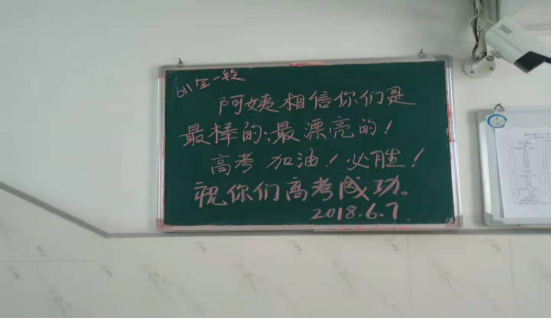 611全一段
阿姨相信你们是
最棒的.最漂亮的!
高考加油!必胜!
祝你们高考成功。
2018.6.7